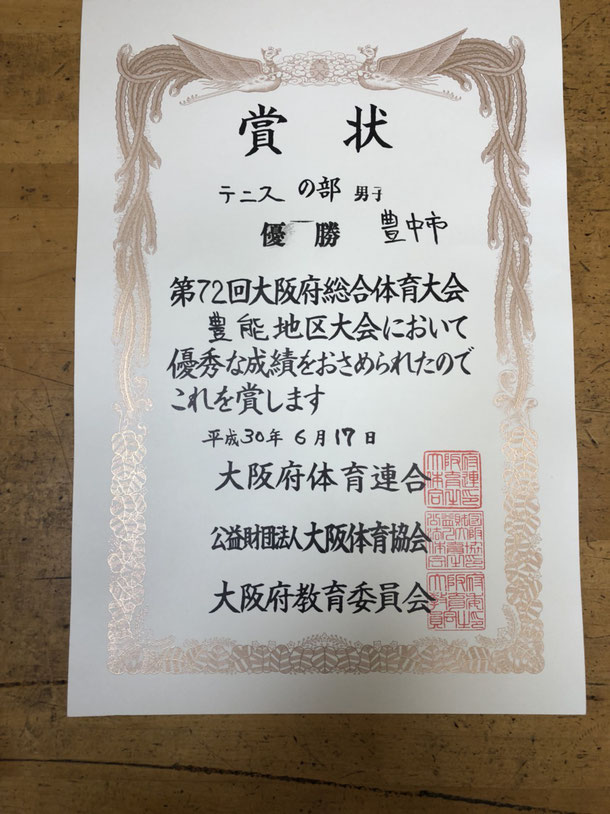 賞状
テニスの部 男子
優勝 豊中市
第72回大阪府総合体育大会
豊能地区大会において
優秀な成績をおさめられたので
これを賞します
平成30年6月17日
大阪府体育連合
公益財団法人大阪体育協会
大阪府教育委員会